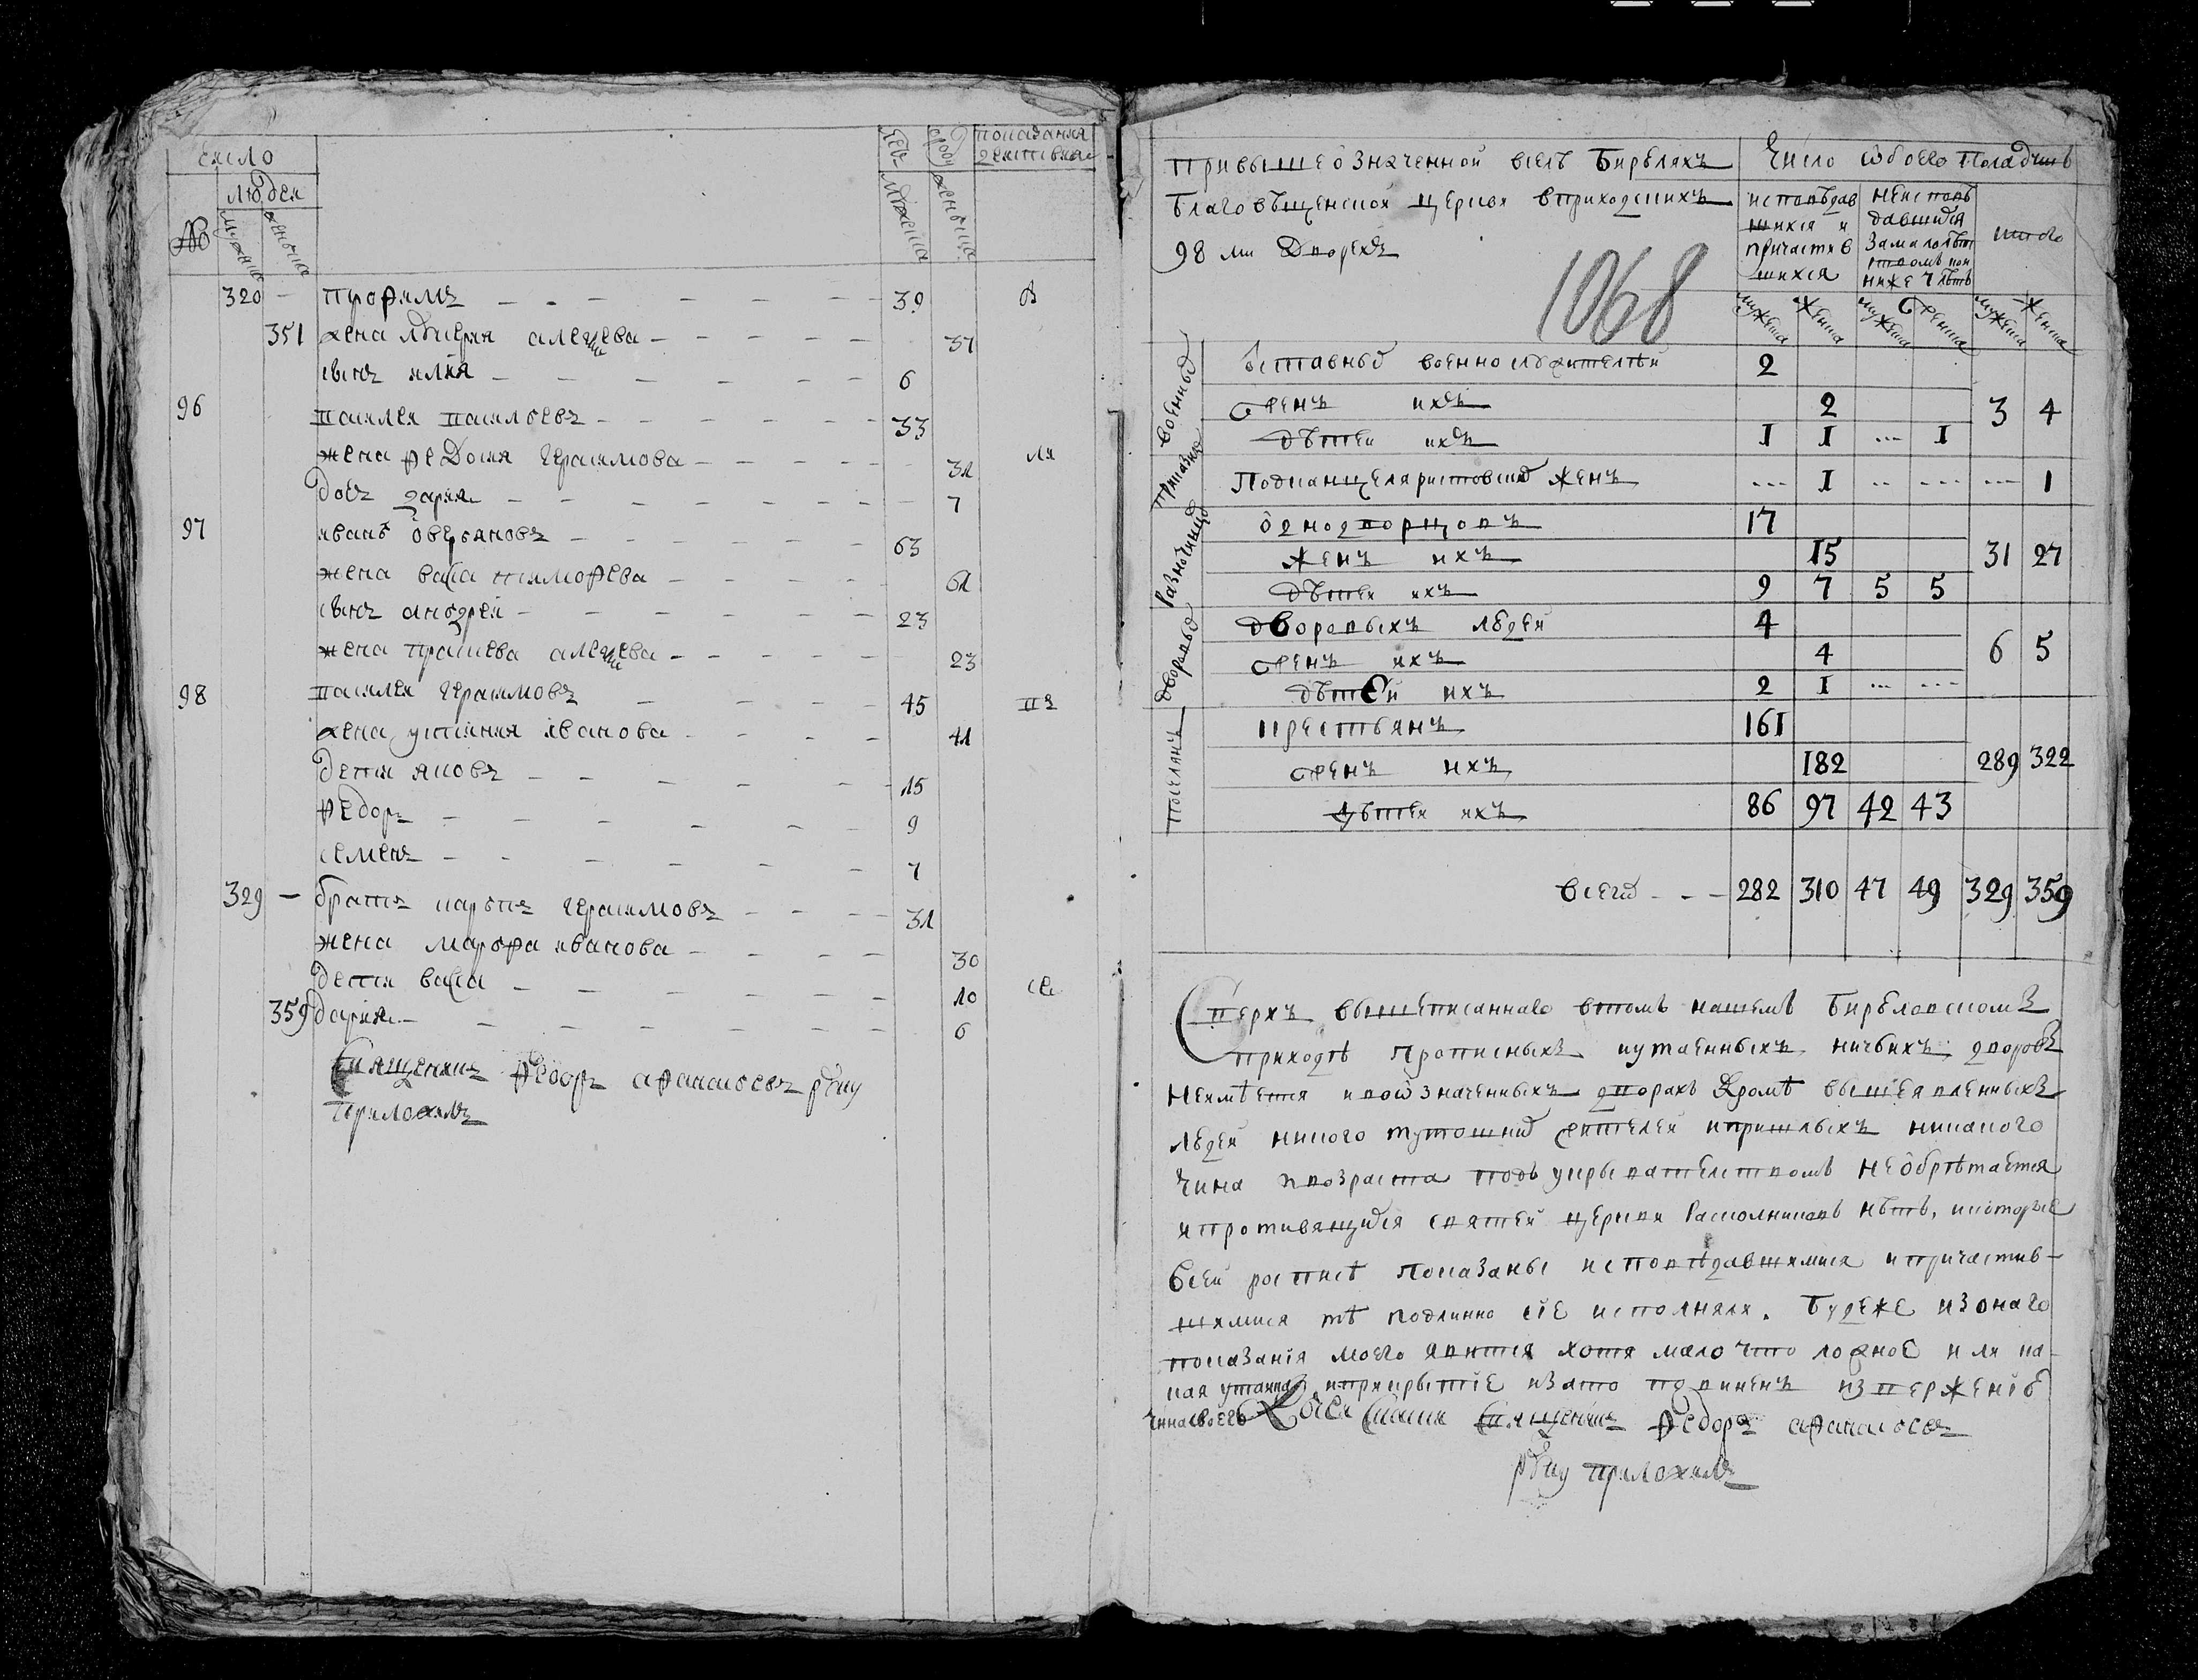 число
людей
№
мужеска
женска
лет
мужеска
женска
показания
320 — трофимъ 39
351 жена лукеря алексеева 37
сынъ илия 6
96 василей васильевъ 33
жена федосия герасимова 31
дочь дария 7
97 иванъ оверьяновъ 63
жена васса тимофева 61
сынъ андрей 23
жена прасковя алексеева 23
98 василей герасимовъ 45
жена устиния иванова 41
дети яковъ 15
федоръ 9
семенъ 7
329 — братъ карпъ герасимовъ 31
жена марфа иванова 30
дети васса 10
359 дария 6
священникъ федоръ афанасьевъ руку
приложилъ
при вышеозначенной в селѣ Бирюляхъ
Благовѣщенской церкви в приходскихъ
98 ми дворехъ
1068
Число обоего пола душъ
исповѣдав
шихся и
причастив
шихся
неисповѣ
давшихся
за малолѣт
ством
ниже 7 лѣтъ
итого
мужеска женска мужеска женска мужеска женска
военные
отставных военнослужителей 2
женъ ихъ 2 3 4
дѣтей ихъ 1 1 ... 1
приказные
Подканцеляристовских женъ ... 1 ... ... ... 1
разночинцы
однодворцовъ 17
женъ ихъ 15 31 27
дѣтей ихъ 9 7 5 5
дворовые
дворовыхъ людей 4
женъ ихъ 4 6 5
дѣтей ихъ 2 1 ... ...
поселянъ
крестьянъ 161
женъ ихъ 182 289 322
дѣтей ихъ 86 97 42 43
всего 282 310 47 49 329 359
Сверхъ вышеписаннаго в томъ нашемъ Бирюловскомъ
приходѣ прописныхъ и утаенныхъ ничьихъ дворовъ
неимѣется и в означенныхъ дворахъ кромѣ вышеявленныхъ
людей никого тутошних жителей и пришлыхъ никакого
чина и возраста подъ укрывателствомъ необрѣтается
и противящихся святей церкви расколниковъ нѣтъ, и которые
в сей росписѣ показаны исповѣдавшимися и причастив-
шимися тѣ подлинно сїе исполняли. Буде же из онаго
показанїя моего явится хотя мало что ложное или ка-
кая утайка и прикрытїе и за то повиненъ изверженїю
чина своего К сей скаски священникъ федоръ афанасьевъ
руку приложилъ